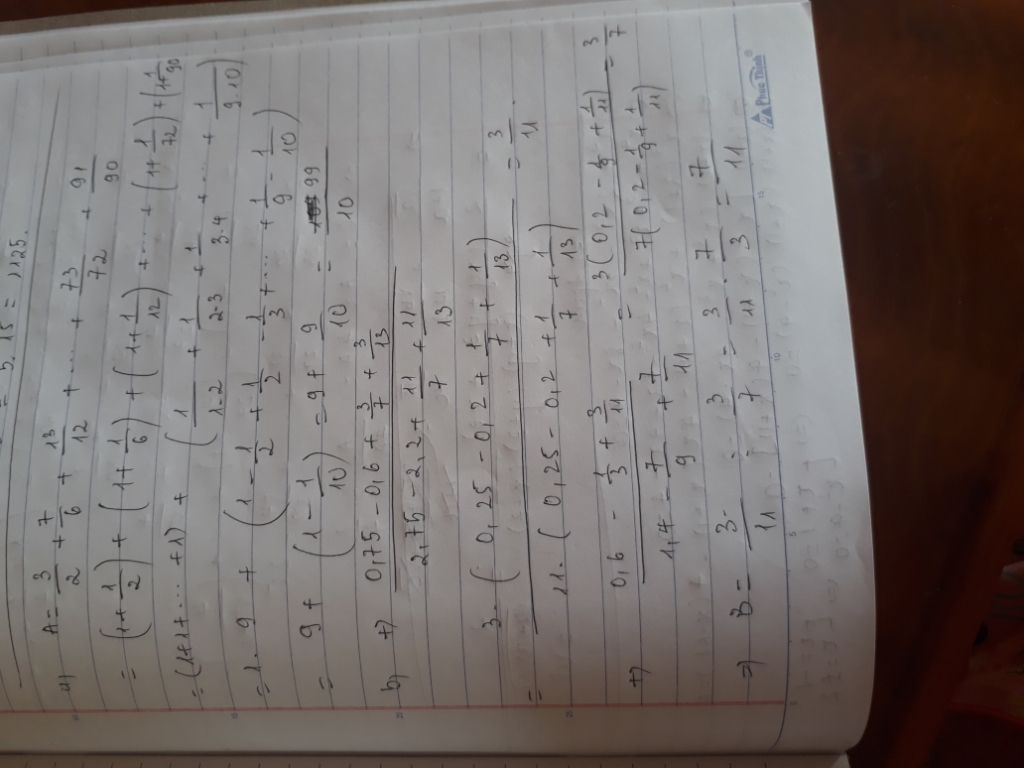 = 5.15 = 1125.
a) A = 3/2 + 7/6 + 13/12 + .... + 73/72 + 91/90
= (1+1/2) + (1+1/6) + (1+1/12) + .... + (1+1/72) + (1+1/90)
= (1+1+... +1) + (1/1.2 + 1/2.3 + 1/3.4 + ... + 1/9.10)
= 1.9 + (1 - 1/2 + 1/2 - 1/3 + .... + 1/9 - 1/10)
= 9 + (1 - 1/10) = 9 + 9/10 = 99/10
b) +) (0,75 - 0,6 + 3/7 + 3/13)/(2,75 - 2,2 + 11/7 + 11/13)
= 3.(0,25 - 0,2 + 1/7 + 1/13)/11.(0,25 - 0,2 + 1/7 + 1/13) = 3/11.
+) (0,6 - 1/3 + 3/11)/(1,4 - 7/9 + 7/11) = 3(0,2 - 1/9 + 1/11)/7(0,2 - 1/9 + 1/11) = 3/7
=) B = 3/11 : 3/7 = 3/11 . 7/3 = 7/11
Phuc Thinh®